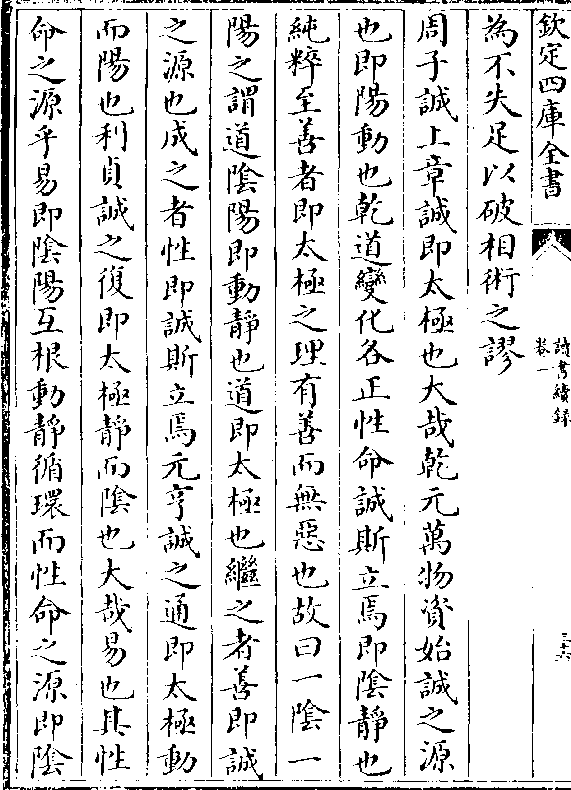 欽定四庫全書
讀書續錄
卷一
三十六
為不失足以破相術之謬
周子誠上章誠即太極也大哉乾元萬物資始誠之源
也即陽動也乾道變化各正性命誠斯立焉即陰靜也
純粹至善者即太極之理有善而無惡也故曰一陰一
陽之謂道陰陽即動靜也道即太極也繼之者善即誠
之源也成之者性即誠斯立焉元亨誠之通即太極動
而陽也利貞誠之復即太極靜而陰也大哉易也其性
命之源乎易即陰陽互根動靜循環而性命之源即陰